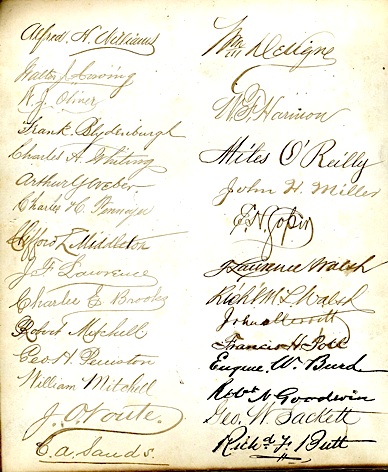 Alfred H. Williams
Walter J. Cowing
W. J. Oliver
Frank Blydenburgh
Charles A. Whiting
Arthur G. Weber
Charles H. C.
Clifford L. Middleton
J. F. Lawrence
Charles E. Brooks
Robert Mitchell
Geo. H.
William Mitchell
J. O. Voute.
C. A. Sands.
Wm
W. F. Harrison
Miles O'Reilly
John H. Miller
E. N.
J. Lawrence Walsh
Rich'd M. L. Walsh
John Merritt
Francis H. Poll
Eugene W. Burd
Robt. N. Goodwin
Geo. W. Sackett
Richd. J. Butt